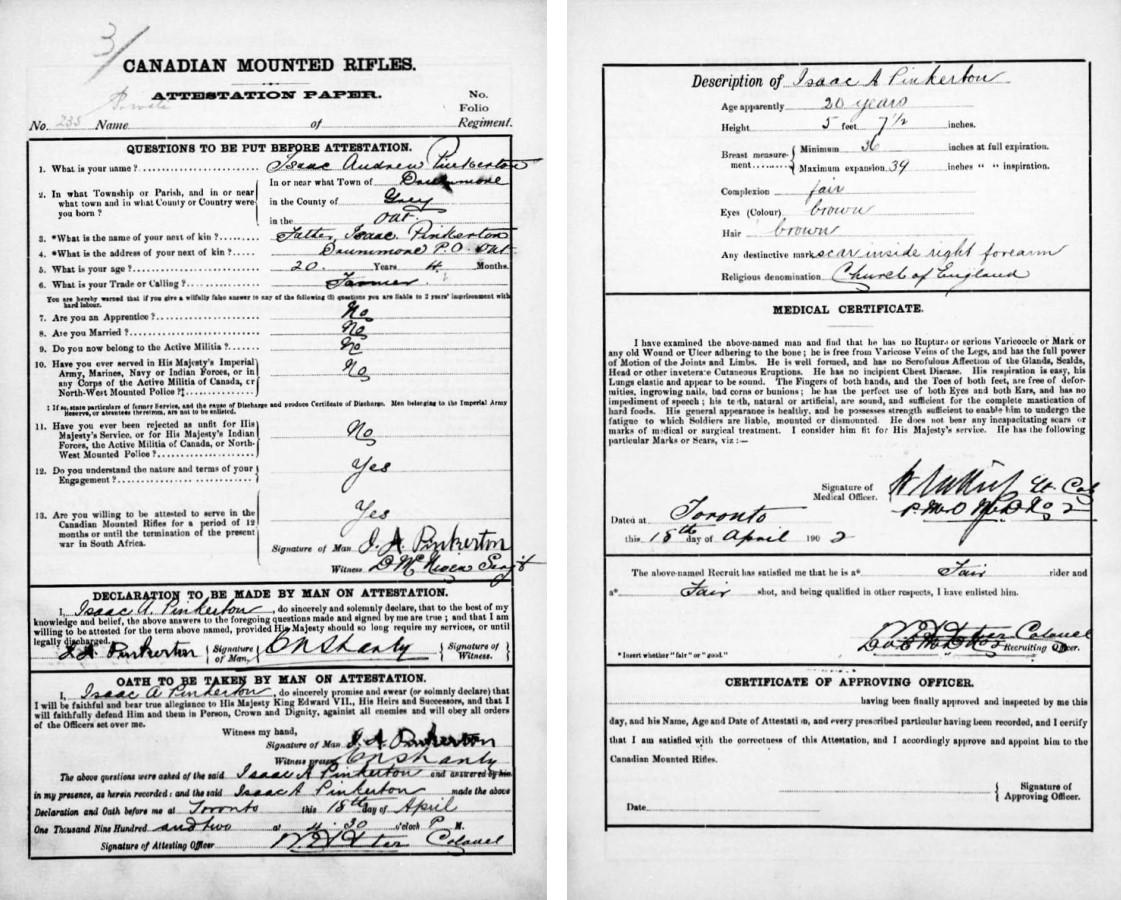 3/
CANADIAN MOUNTED RIFLES.
ATTESTATION PAPER.
No.
Folio
Private
No. 235 Name of Regiment.
QUESTIONS TO BE PUT BEFORE ATTESTATION.
1. What is your name ? Isaac Andrew Pinkerton
2. In what Township or Parish, and in or near what town and in what County or Country were you born ?
In or near what Town of
in the County of Grey
in the Ont.
3. *What is the name of your next of kin ? Father, Isaac Pinkerton
4. *What is the address of your next of kin ? P.O. Ont.
5. What is your age ? 20 Years 4 Months.
6. What is your Trade or Calling ? Farmer
You are hereby warned that if you give a wilfully false answer to any of the following (5) questions you are liable to 2 years' imprisonment with
hard labour.
7. Are you an Apprentice ? No
8. Are you Married ? No
9. Do you now belong to the Active Militia ? No
10. Have you ever served in His Majesty's Imperial
Army, Marines, Navy or Indian Forces, or in
any Corps of the Active Militia of Canada, or
North-West Mounted Police ?‡ No
‡ If so, state particulars of former Service, and the cause of Discharge and produce Certificate of Discharge. Men belonging to the Imperial Army
Reserve, or absentees therefrom, are not to be enlisted.
11. Have you ever been rejected as unfit for His
Majesty's Service, or for His Majesty's Indian
Forces, the Active Militia of Canada, or North-
West Mounted Police ? No
12. Do you understand the nature and terms of your
Engagement ? Yes
13. Are you willing to be attested to serve in the
Canadian Mounted Rifles for a period of 12
months or until the termination of the present
war in South Africa. Yes
Signature of Man I. A. Pinkerton
Witness D McNiven Sergt
DECLARATION TO BE MADE BY MAN ON ATTESTATION.
I, Isaac A. Pinkerton, do sincerely and solemnly declare, that to the best of my
knowledge and belief, the above answers to the foregoing questions made and signed by me are true ; and that I am
willing to be attested for the term above named, provided His Majesty should so long require my services, or until
legally discharged.
I. A. Pinkerton { Signature of Man. CN Shanly { Signature of Witness.
OATH TO BE TAKEN BY MAN ON ATTESTATION.
I, Isaac A Pinkerton, do sincerely promise and swear (or solmnly declare) that
I will be faithful and bear true allegiance to His Majesty King Edward VII., His Heirs and Successors, and that I
will faithfully defend Him and them in Person, Crown and Dignity, against all enemies and will obey all orders
of the Officers set over me.
Witness my hand,
Signature of Man I. A. Pinkerton
Witness present CN Shanly
The above questions were asked of the said Isaac A Pinkerton and answered by him
in my presence, as herein recorded : and the said Isaac A Pinkerton made the above
Declaration and Oath before me at Toronto this 18th day of April
One Thousand Nine Hundred and two at 4.30 o'clock P. M.
Signature of Attesting Officer Colonel
Description of Isaac A Pinkerton
Age apparently 20 years
Height 5 feet 7½ inches.
Breast measurement { Minimum 36 inches at full expiration.
Maximum expansion 39 inches " " inspiration.
Complexion fair
Eyes (Colour) brown
Hair brown
Any distinctive mark scar inside right forearm
Religious denomination Church of England
MEDICAL CERTIFICATE.
I have examined the above-named man and find that he has no Rupture or serious Varicocele or Mark or
any old Wound or Ulcer adhering to the bone ; he is free from Varicose Veins of the Legs, and has the full power
of Motion of the Joints and Limbs. He is well formed, and has no Scrofulous Affection of the Glands, Scalds,
Head or other inveterate Cutaneous Eruptions. He has no incipient Chest Disease. His respiration is easy, his
Lungs elastic and appear to be sound. The Fingers of both hands, and the Toes of both feet, are free of defor-
mities, ingrowing nails, bad corns or bunions ; he has the perfect use of both Eyes and both Ears, and has no
impediment of speech ; his teeth, natural or artificial, are sound, and sufficient for the complete mastication of
hard foods. His general appearance is healthy, and he possesses strength sufficient to enable him to undergo the
fatigue to which Soldiers are liable, mounted or dismounted. He does not bear any incapacitating scars or
marks of medical or surgical treatment. I consider him fit for His Majesty's service. He has the following
particular Marks or Scars, viz :—
Signature of Medical Officer. Lt. Col
P.M.O M.D. No 2
Dated at Toronto
this 18th day of April 1902
The above-named Recruit has satisfied me that he is a* Fair rider and
a* Fair shot, and being qualified in other respects, I have enlisted him.
Colonel
D.O.C. M.D. No 2 Recruiting Officer.
*Insert whether "fair" or "good."
CERTIFICATE OF APPROVING OFFICER.
having been finally approved and inspected by me this
day, and his Name, Age and Date of Attestation, and every prescribed particular having been recorded, and I certify
that I am satisfied with the correctness of this Attestation, and I accordingly approve and appoint him to the
Canadian Mounted Rifles.
{ Signature of Approving Officer.
Date